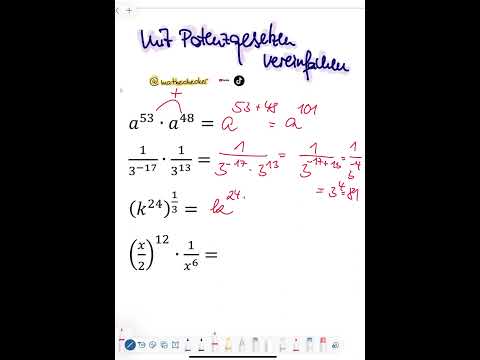 mit Potenzgesetzen
vereinfachen
@mathechecker
+
a^53 · a^48 = a^(53+48) = a^101
1/3^-17 · 1/3^13 = 1/(3^-17 · 3^13) = 1/3^(-17+13) = 1/3^-4
= 3^4 = 81
(k^24)^(1/3) = k^24·
(x/2)^12 · 1/x^6 =